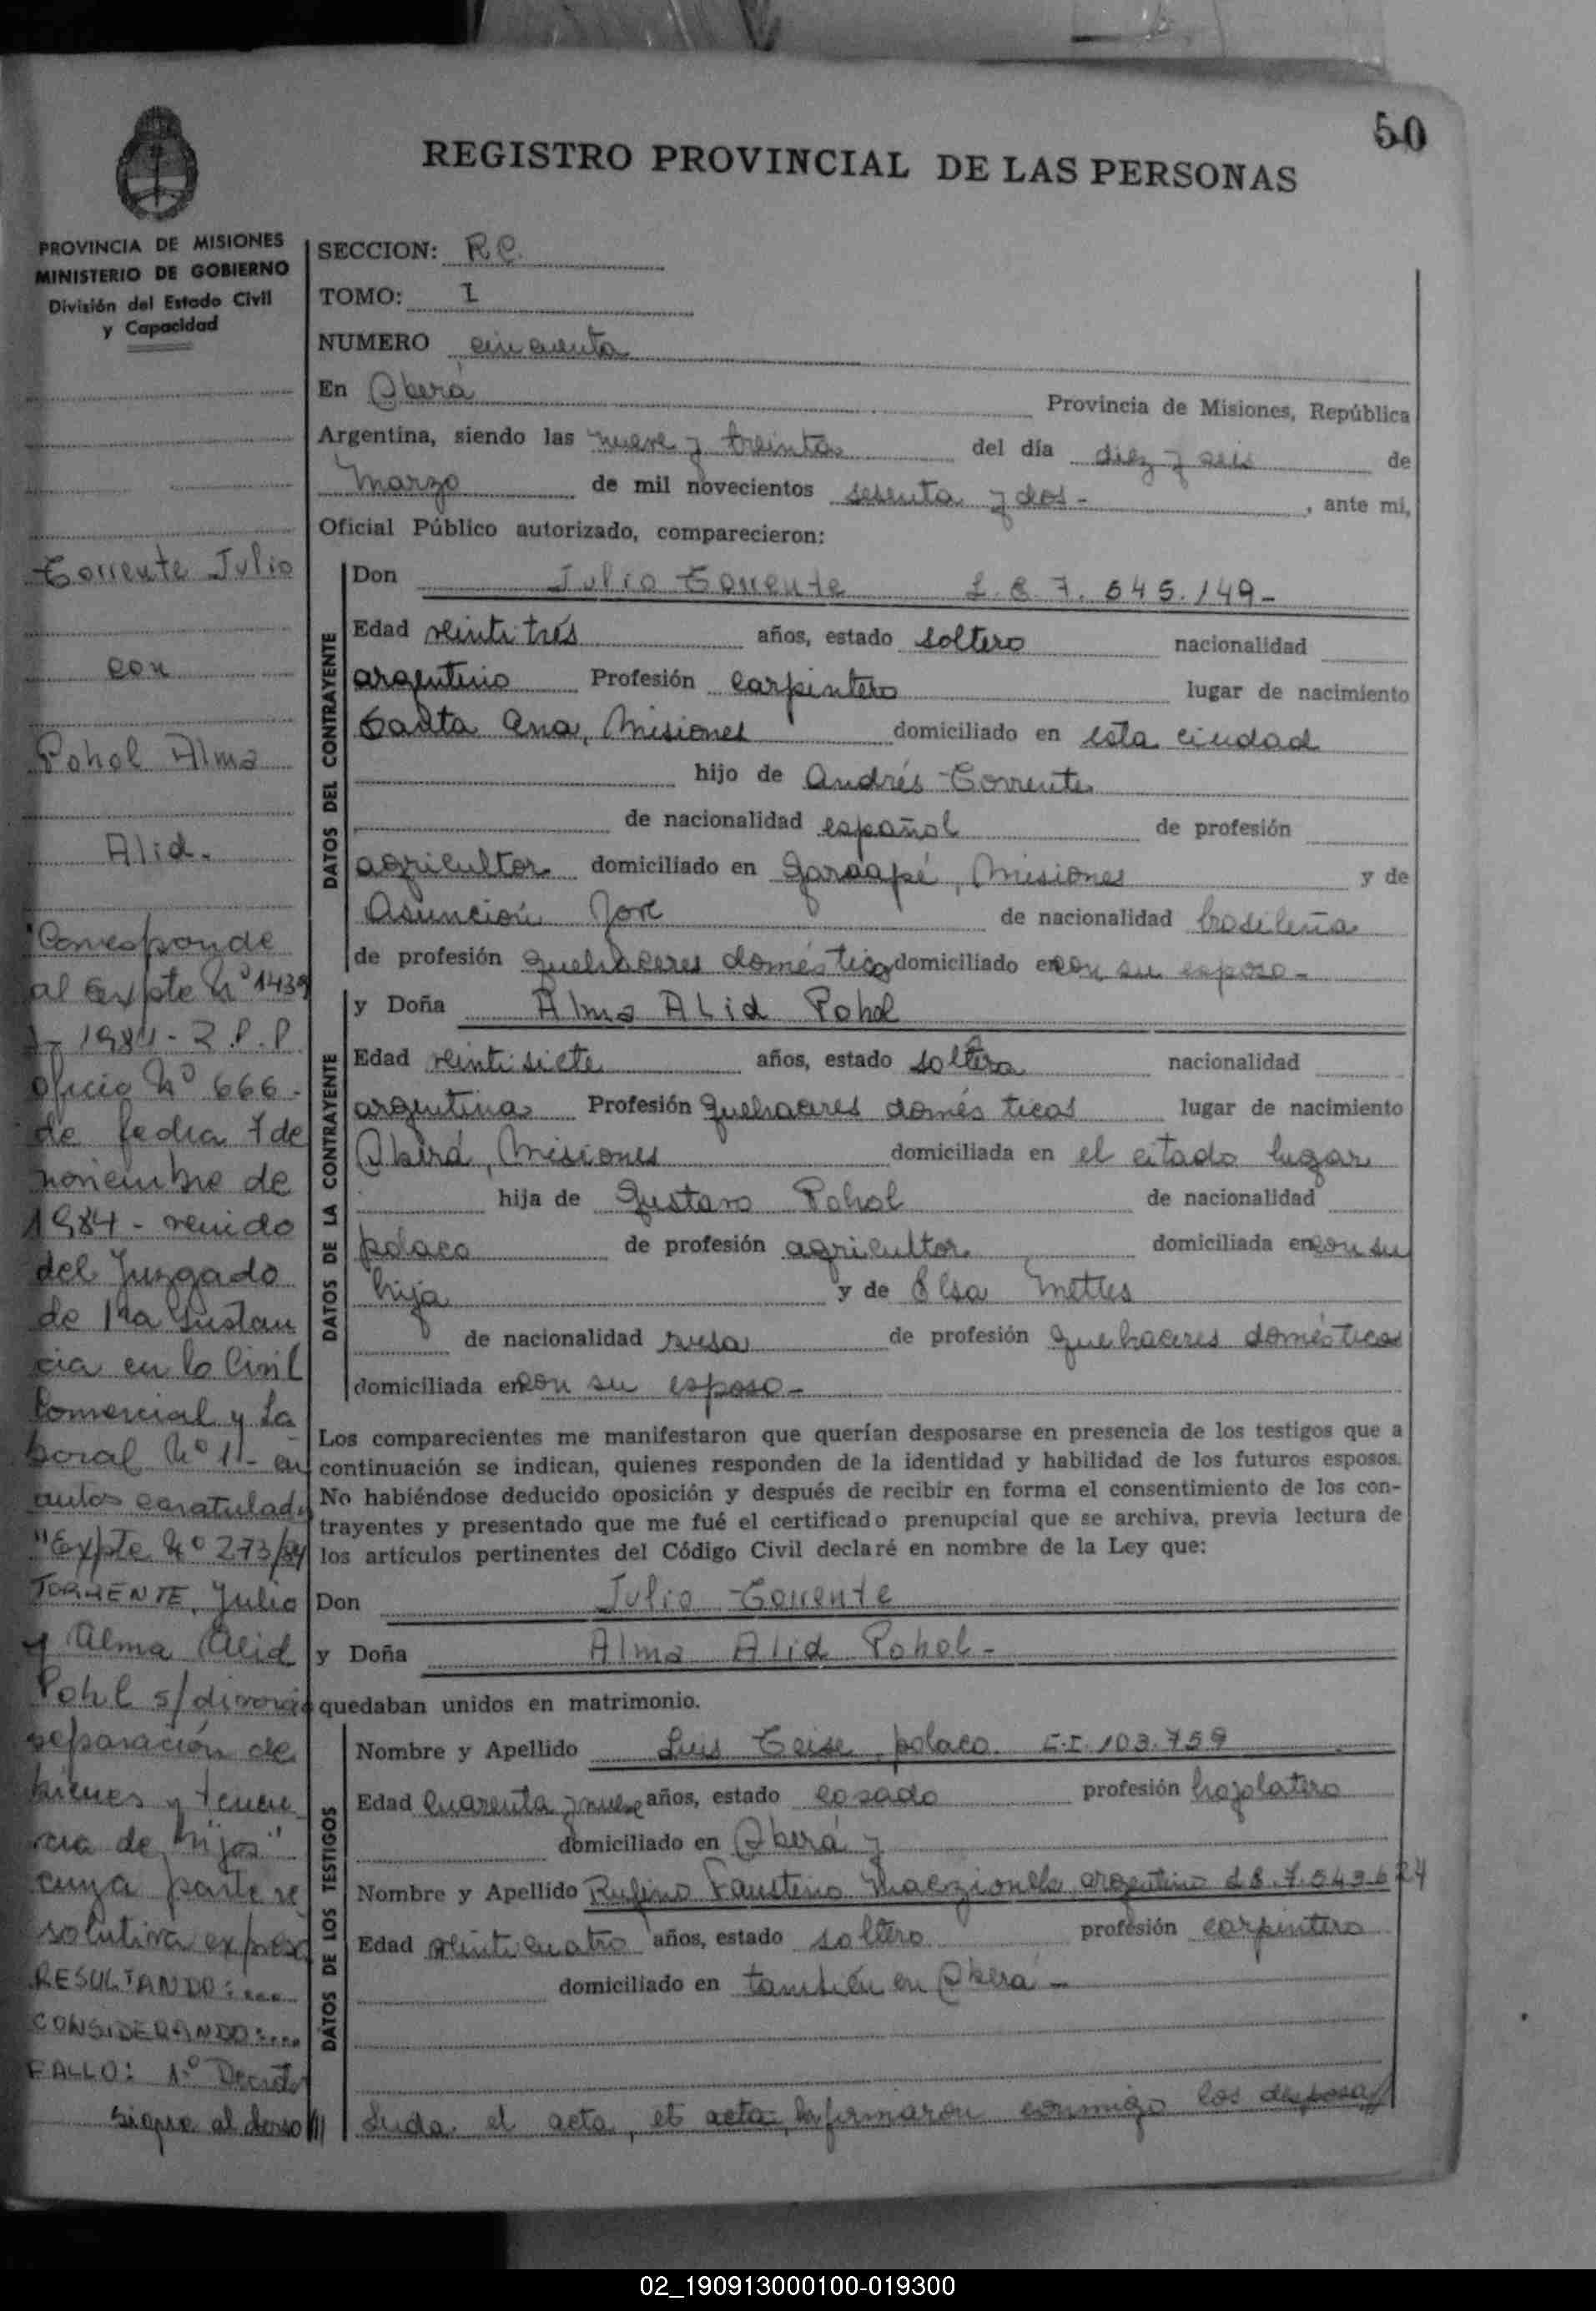 50
REGISTRO PROVINCIAL DE LAS PERSONAS
PROVINCIA DE MISIONES
MINISTERIO DE GOBIERNO
División del Estado Civil
y Capacidad
SECCION: R.C.
TOMO: I
NUMERO cincuenta
En Oberá Provincia de Misiones, República
Argentina, siendo las nueve y treinta del día diez y seis de
Marzo de mil novecientos sesenta y dos- , ante mi,
Oficial Público autorizado, comparecieron:
DATOS DEL CONTRAYENTE
Don Julio Torrente L.E. 7.545.149-
Edad veintitrés años, estado soltero nacionalidad
argentino Profesión carpintero lugar de nacimiento
Santa Ana, Misiones domiciliado en esta ciudad
hijo de Andrés Torrente
de nacionalidad español de profesión
agricultor domiciliado en Garuapé, Misiones y de
Asunción de nacionalidad brasileña
de profesión quehaceres doméstico domiciliado en con su esposo-
y Doña Alma Alid Pohol
DATOS DE LA CONTRAYENTE
Edad veintisiete años, estado soltera nacionalidad
argentina Profesión quehaceres domésticos lugar de nacimiento
Oberá, Misiones domiciliada en el citado lugar
hija de Gustavo Pohol de nacionalidad
polaco de profesión agricultor domiciliada en con su
hija y de Elsa Mettes
de nacionalidad rusa de profesión quehaceres domésticos
domiciliada en con su esposo-
Los comparecientes me manifestaron que querían desposarse en presencia de los testigos que a
continuación se indican, quienes responden de la identidad y habilidad de los futuros esposos.
No habiéndose deducido oposición y después de recibir en forma el consentimiento de los con-
trayentes y presentado que me fué el certificado prenupcial que se archiva, previa lectura de
los artículos pertinentes del Código Civil declaré en nombre de la Ley que:
Don Julio Torrente
y Doña Alma Alid Pohol-
quedaban unidos en matrimonio.
DATOS DE LOS TESTIGOS
Nombre y Apellido Luis Teise, polaco. C.I. 103.759
Edad cuarenta y nueve años, estado casado profesión hojalatero
domiciliado en Oberá y
Nombre y Apellido Rufino Faustino argentino L.E. 7.543.624
Edad veinticuatro años, estado soltero profesión carpintero
domiciliado en también en Oberá-
Leída el acta, el acta, la firmaron conmigo los desposa//
Torrente Julio
con
Pohol Alma
Alid.
Corresponde
al Expte Nº 1439
1984- R.P.P.
oficio Nº 666-
de fecha 7 de
noviembre de
1984- venido
del Juzgado
de 1ra Instan
cia en lo Civil
Comercial y La
boral Nº 1- en
autos caratulados
"Expte Nº 273/84
TORRENTE, Julio
y Alma Alid
Pohl s/divorcio
separación de
bienes y tenen
cia de hijos"
cuya parte re
solutiva expresa
RESULTANDO:...
CONSIDERANDO:...
FALLO: 1º Decretar
sigue al dorso///
02_190913000100-019300